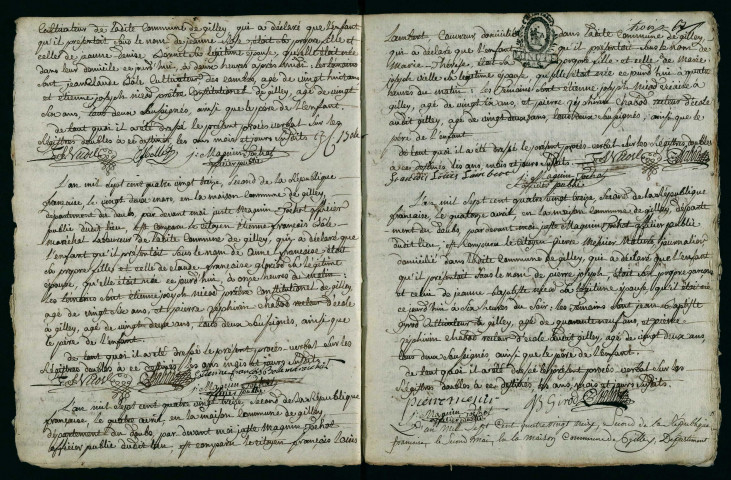 Cultivateur de ladite Commune de gilley, qui a déclaré que l'enfant
qu'il présentoit sous le nom de jeanne était sa propre fille et
celle de jeanne denise sa légitime épouse, qu'elle était née
dans leur domicile ce jourd'hui, à deux heures après midi. Les temoins
sont jean claude Bole Cultivateur des Combes, agé de vingt huit ans
et étienne joseph nicod prêtre Constitutionel de gilley, agé de vingt
six ans, tous deux soussignés, ainsi que le père de l'enfant.
de tout quoi il a été dressé le present procès verbal sur les
Registres doubles à ce destinés, les ans mois et jours susdits
j: Maguin jochot
officier public
L'an mil sept cent quatre vingt treize, second de la République
francaise, le vingt deux mars, en la maison Commune de gilley,
département du doubs, par devant moi juste Maguin jochot officier
public dudit lieu est comparu le citoyen étienne françois Bole
maréchal Laboureur de ladite Commune de gilley, qui a déclaré que
l'enfant qu'il présentoit sous le nom de anne françoise, était
sa propre fille et celle de claude françoise sa légitime
épouse, qu'elle était née ce jourd'hui, à onze heures de matin:
Les temoins sont étienne joseph nicod prêtre Constitutionel de gilley
agé de vingt six ans, et pierre zéphirin chabod recteur d'école
à gilley, agé de vingt deux ans, tous deux soussignés, ainsi que
le père de l'enfant.
de tout quoi il a été dressé le présent procès-verbal sur les
Registres doubles à ce destinés, les ans mois et jours susdits
j: Maguin jochot
officier public
L'an mil sept cent quatre vingt treize, second de la République
francaise, le quatre avril, en la maison Commune de gilley
département du doubs, par devant moi juste Maguin jochot
officier public dudit lieu, est comparu le citoyen françois Louis
Lambert Couvreur domicilié dans ladite Commune de gilley,
qui a déclaré que l'enfant qu'il présentoit sous le nom de
Marie Thérèse, était sa propre fille et celle de Marie
joseph sa légitime épouse, qu'elle était née ce jourd'hui à quatre
heures du matin: Les temoins sont étienne joseph nicod à
gilley, agé de vingt six ans, et pierre zéphirin chabod recteur d'école
audit gilley, agé de vingt deux ans, tous deux soussignés, ainsi que
le père de l'enfant
de tout quoi il a été dressé le present procès verbal sur les Registres doubles
à ce destinés, les ans, mois et jours susdits.
françois Louis Lambert
j: Maguin jochot
officier public
L'an mil sept cent quatre vingt treize, second de la République
francaise, le quatorze avril, en la maison Commune de gilley, département
du doubs, par devant moi juste Maguin jochot officier public
dudit lieu, est comparu le citoyen pierre journalier
domicilié dans ladite Commune de gilley, qui a déclaré que l'enfant
qu'il présentoit sous le nom de pierre joseph, était son propre garçon
et celui de jeanne baptiste sa légitime épouse, qu'il était né
ce jourd'hui à six heures du soir, les temoins sont jean Baptiste
girod Cultivateur à gilley, agé de quarante neuf ans, et pierre
zéphirin chabod recteur d'école dudit gilley, agé de vingt deux ans,
tous deux soussignés, ainsi que le père de l'enfant.
de tout quoi il a été dressé le present procès verbal sur les
Registres doubles à ce destinés, les ans, mois et jours susdits.
j: Maguin jochot
officier public
JB Girod
L'an mil sept cent quatre vingt treize, second de la République
francaise, le second mai, en la maison Commune de Gilley, Département